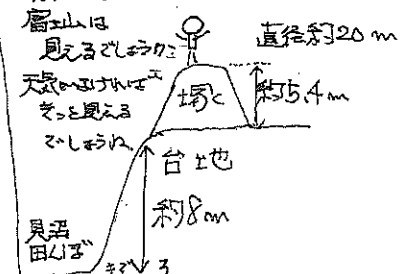 富士山は
見えるでしょうか?
天気がよければ
きっと見える
でしょうね。
直径約20m
約5.4m
台地
約8m
見沼
田んぼ